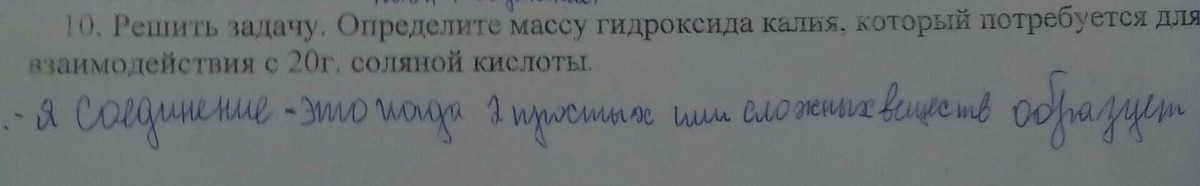 10. Решить задачу. Определите массу гидроксида калия, который потребуется для
взаимодействия с 20г. соляной кислоты.
.- я соединение - это когда 2 простых или сложных веществ образует